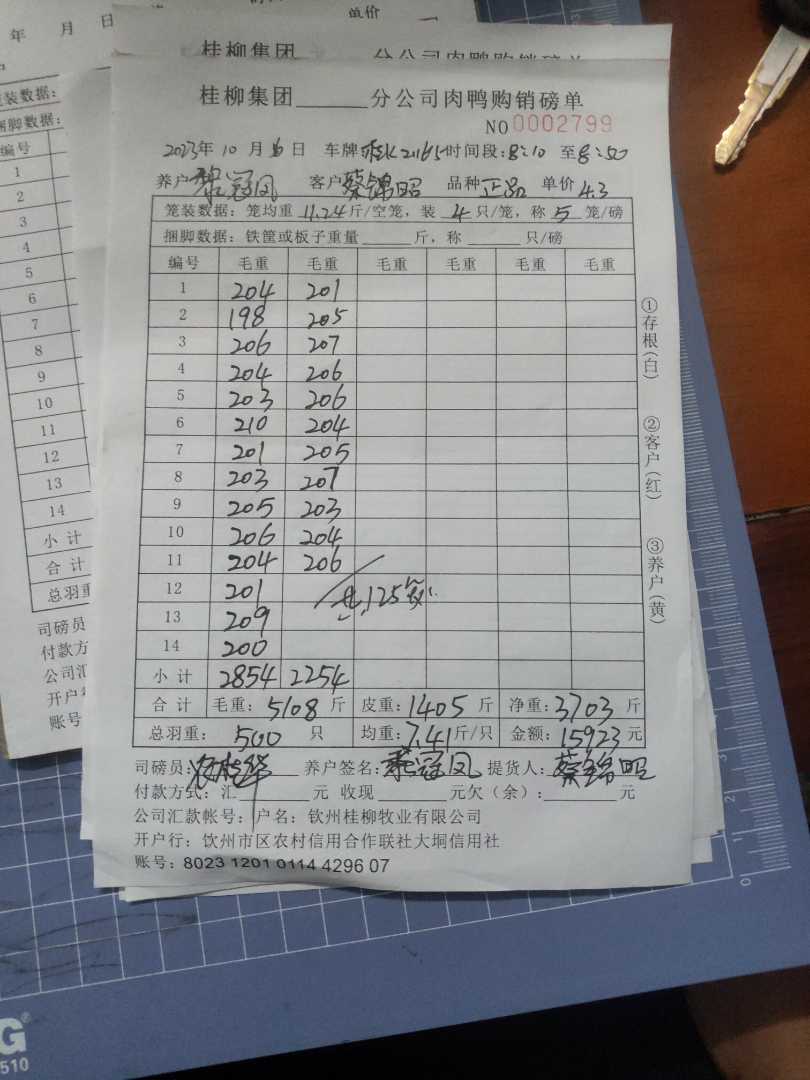 年 月 日
单价
桂柳集团 分公司肉鸭购销磅单
桂柳集团______分公司肉鸭购销磅单
NO 0002799
2023年 10 月 日 车牌 时间段:8:10 至8:50
养户 黎冠凤 客户 蔡锦昭 品种 正品 单价 4.3
笼装数据:笼均重 11.24 斤/空笼,装 4 只/笼,称 5 笼/磅
捆脚数据:铁筐或板子重量______斤,称______只/磅
编号 毛重 毛重 毛重 毛重 毛重 毛重
1 204 201
2 198 205
3 206 207
4 204 206
5 203 206
6 210 204
7 201 205
8 203 207
9 205 203
10 206 204
11 204 206
12 201 共125笼
13 209
14 200
小 计 2854 2254
合 计 毛重:5108 斤 皮重:1405 斤 净重:3703 斤
总羽重: 500 只 均重:7.41斤/只 金额:15923元
司磅员: 养户签名:黎冠凤 提货人:蔡锦昭
付款方式:汇______元 收现______元欠(余):______元
公司汇款帐号:户名:钦州桂柳牧业有限公司
开户行:饮州市区农村信用合作联社大垌信用社
账号:8023 1201 0114 4296 07
①存根(白) ②客户(红) ③养户(黄)
装数据:
捆脚数据:
编号
1
2
3
4
5
6
7
8
9
10
11
12
13
14
小 计
合 计
总羽重
司磅员
付款方
公司汇
开户
账号
0
1
2
G
510